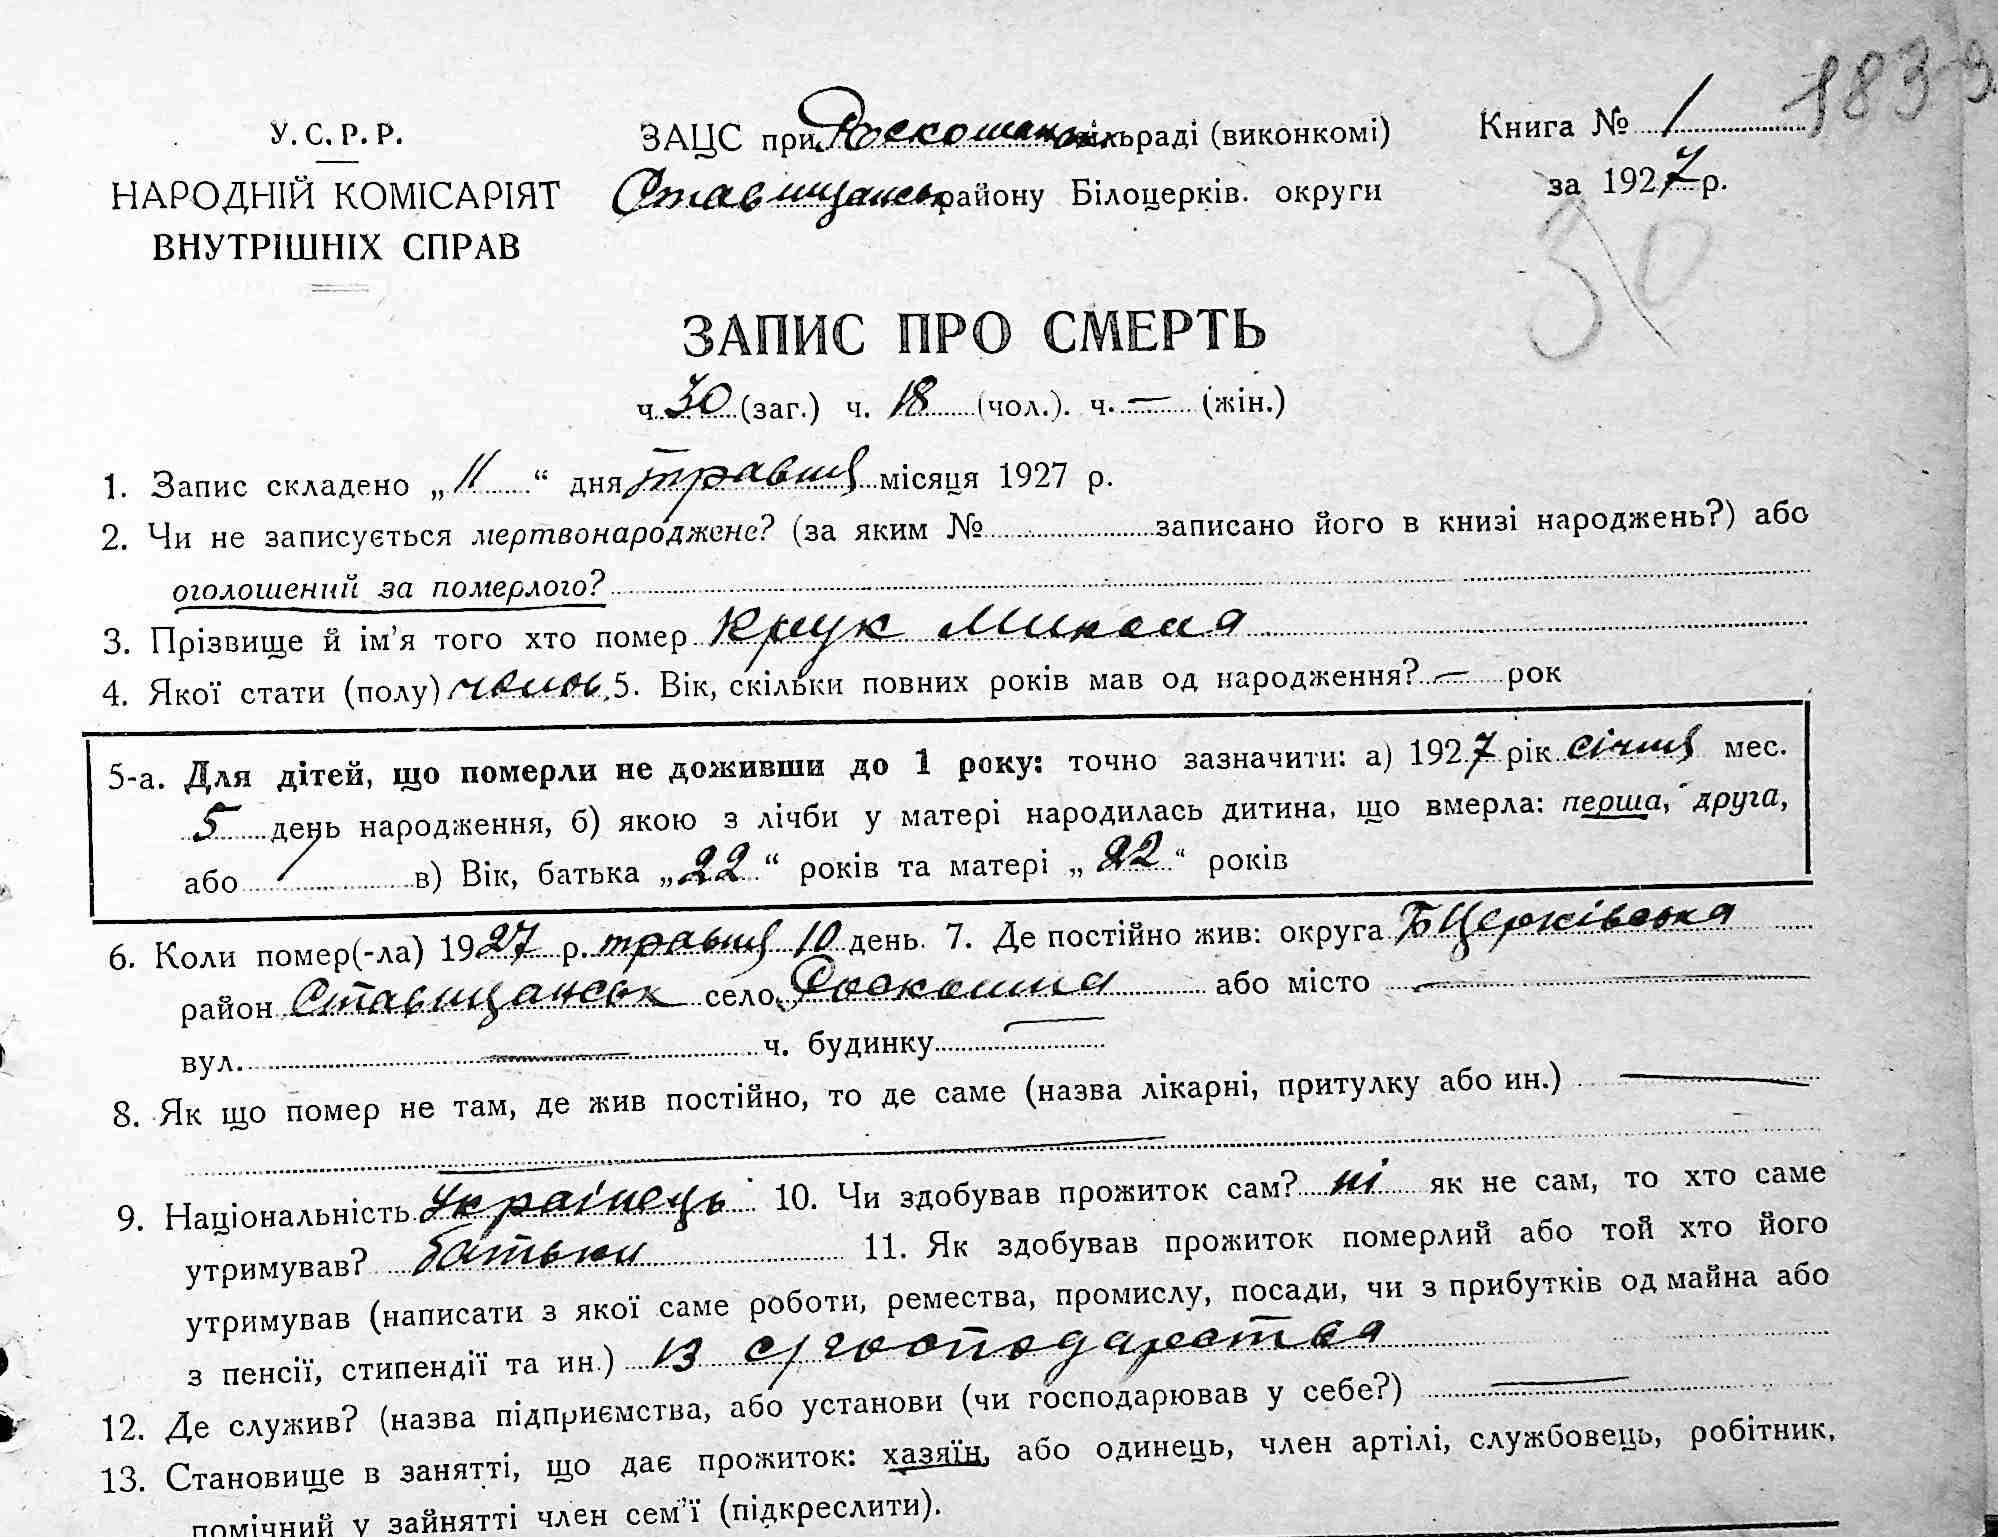 1839
У.С.Р.Р.
НАРОДНІЙ КОМІСАРІЯТ
ВНУТРІШНІХ СПРАВ
ЗАЦС при Роскошанськ сільраді (виконкомі)
Ставищанськ району Білоцерків. округи
Книга № 1
за 1927 р.
30
ЗАПИС ПРО СМЕРТЬ
ч. 30 (заг.) ч. 18 (чол.). ч. — (жін.)
1. Запис складено „11“ дня травня місяця 1927 р.
2. Чи не записується мертвонароджене? (за яким № записано його в книзі народжень?) або
оголошений за померлого?
3. Прізвище й ім’я того хто помер Крук Микола
4. Якої стати (полу) чолов. 5. Вік, скільки повних років мав од народження? — рок
5-а. Для дітей, що померли не доживши до 1 року: точно зазначити: а) 1927 рік січня мес.
5 день народження, б) якою з лічби у матері народилась дитина, що вмерла: перша, друга,
або в) Вік, батька „22“ років та матері „22“ років
6. Коли помер(-ла) 1927 р. травня 10 день. 7. Де постійно жив: округа БЦерківська
район Ставищанськ село Роскошна або місто —
вул. — ч. будинку —
8. Як що помер не там, де жив постійно, то де саме (назва лікарні, притулку або ин.) —
9. Національність Українець 10. Чи здобував прожиток сам? ні як не сам, то хто саме
утримував? батьки 11. Як здобував прожиток померлий або той хто його
утримував (написати з якої саме роботи, ремества, промислу, посади, чи з прибутків од майна або
з пенсії, стипендії та ин.) із с/господарства
12. Де служив? (назва підприємства, або установи (чи господарював у себе?) —
13. Становище в занятті, що дає прожиток: хазяїн, або одинець, член артілі, службовець, робітник,
помічний у зайнятті член сем’ї (підкреслити).